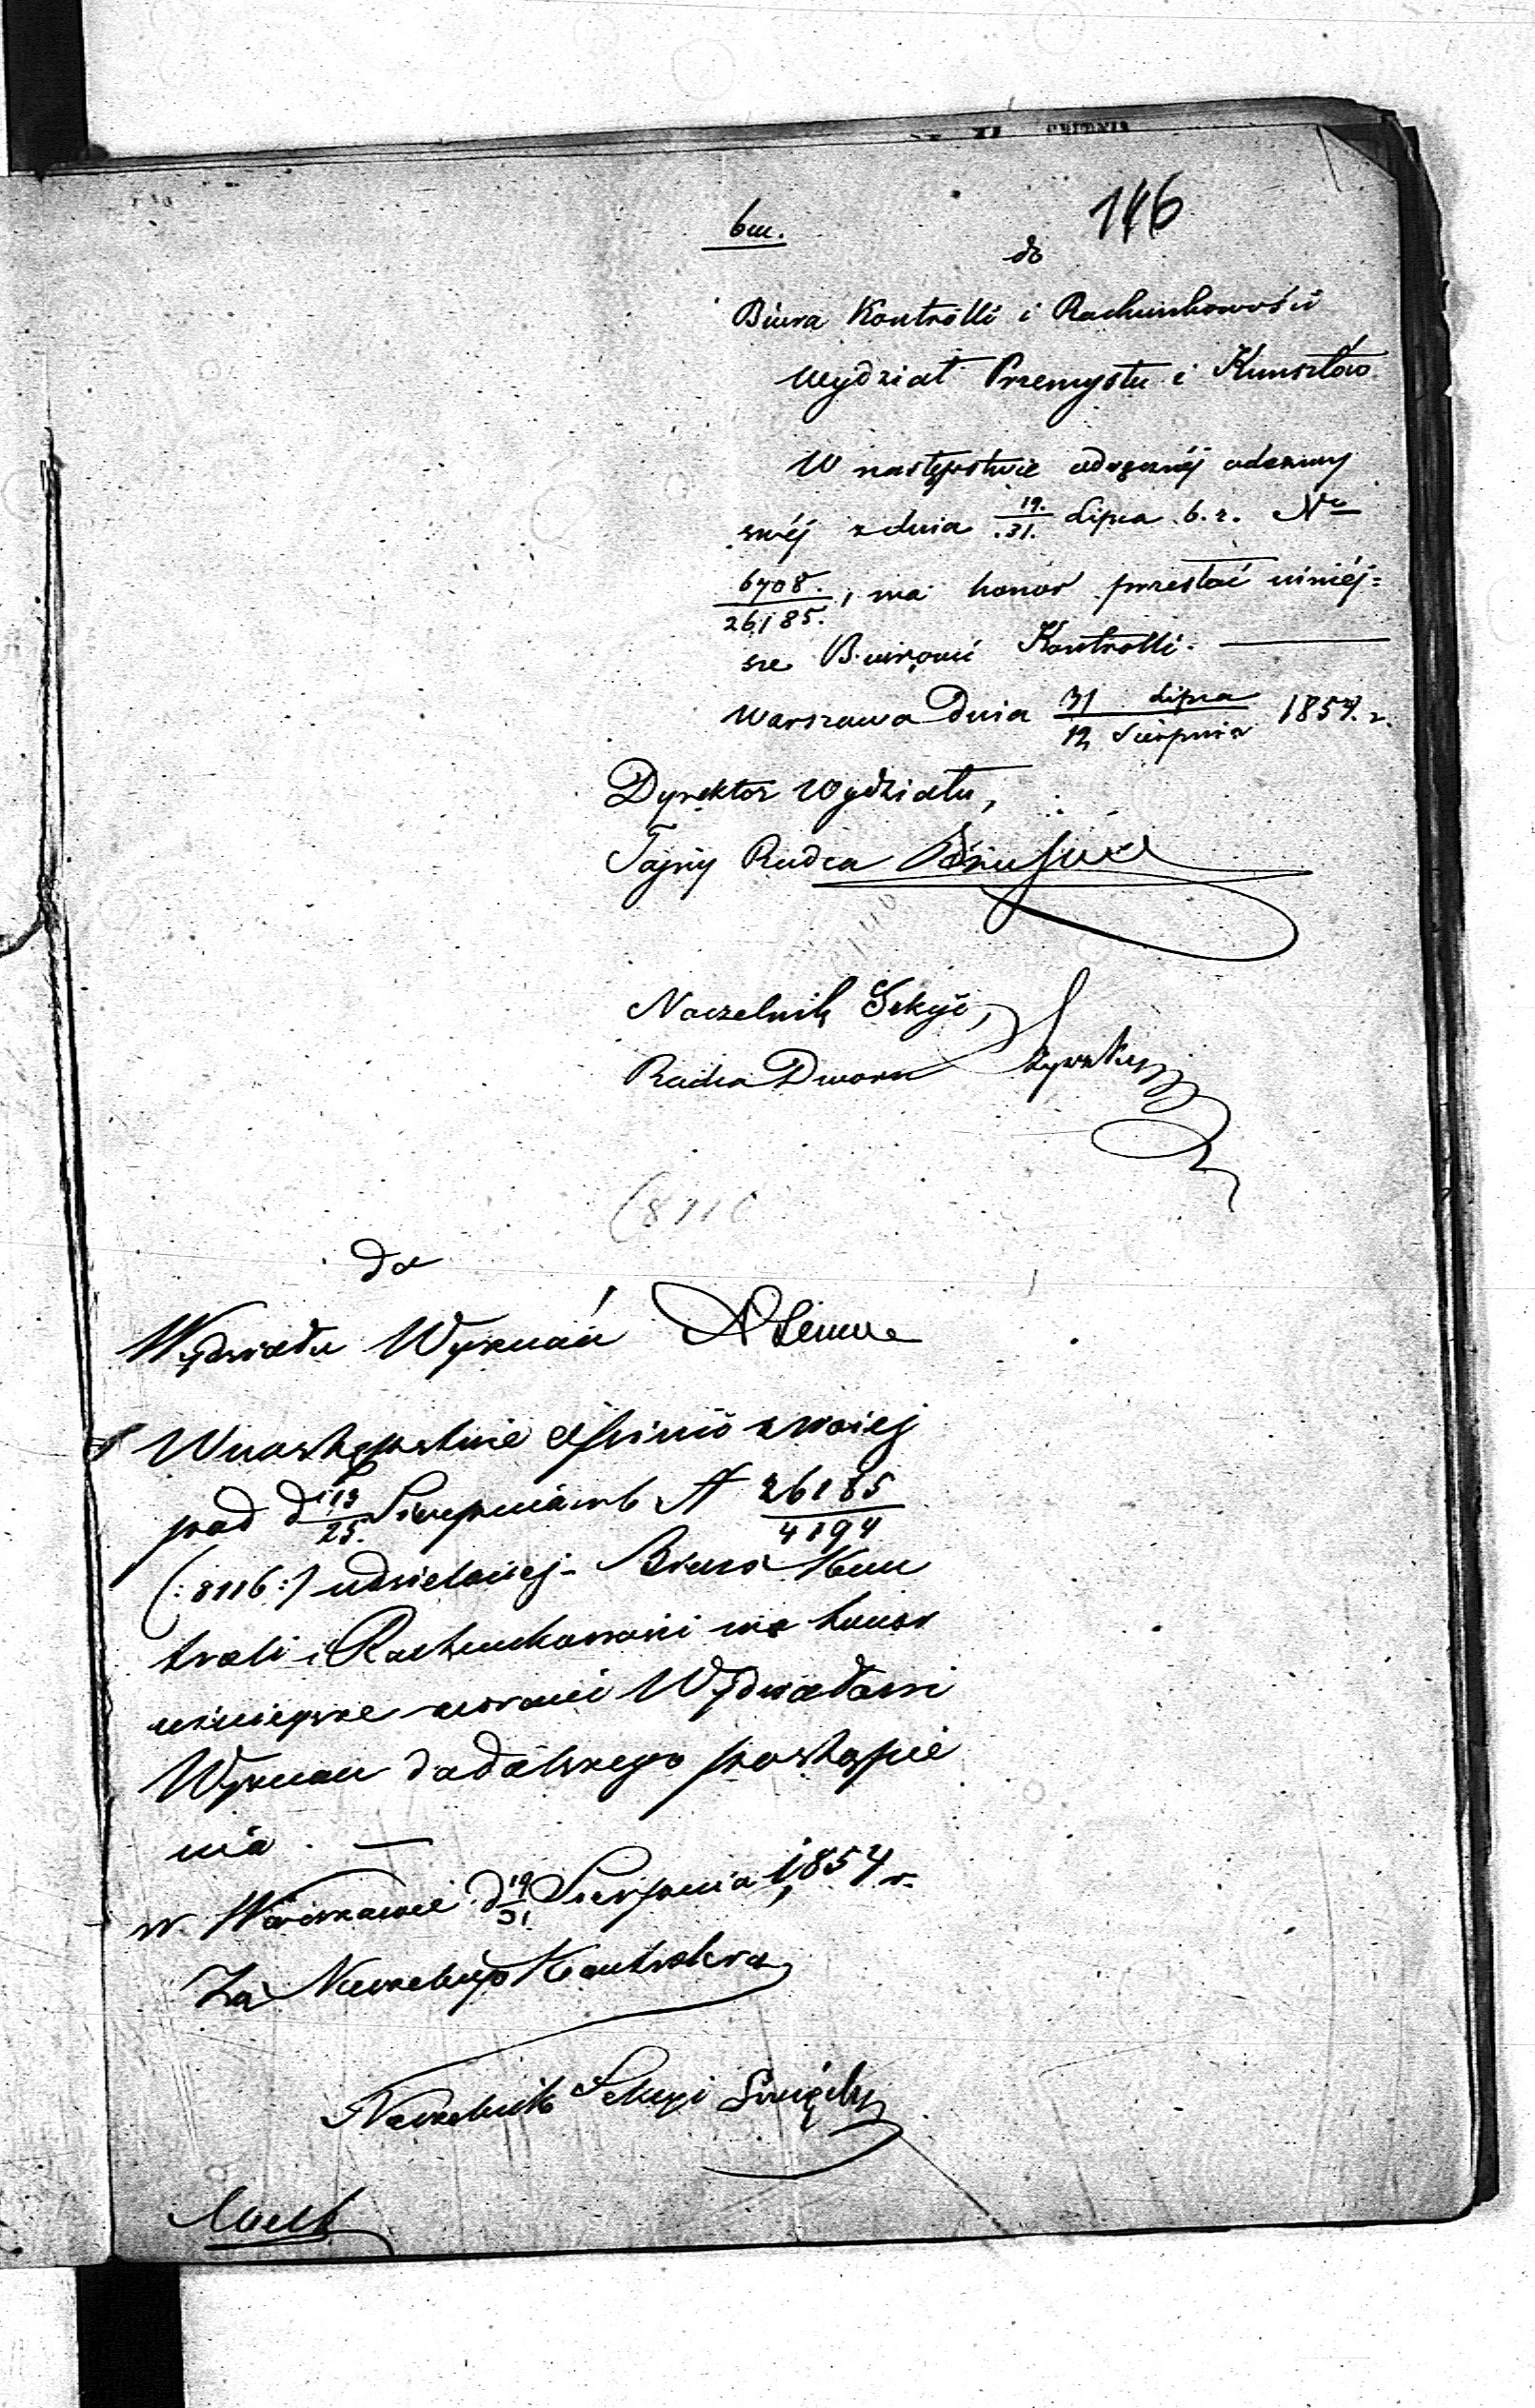 146
bm.
do
Biura Kontrolli i Rachunkowości
Wydział Przemysłu i Kunsztów
W następstwie odręcznéj odezwy
swéj z dnia 19./31. Lipca b. r. No
6708./26185., ma honor przesłać niniéj=
sze Biurowi Kontrolli. —
Warszawa Dnia 31 Lipca/12 Sierpnia 1854. r.
Dyrektor Wydziału,
Tajny Radca
Naczelnik Sekcji,
Radca Dworu
(8116
Do
Wydziału Wyznań
W następstwie opinii swoiej
pod d 13/25. Sierpnia rb N 26185/4194
(:8116:) udzieloney - Biuro Kon
troli i Rachunkowości ma honor
ninieysze zwrócić Wydziałowi
Wyznań do dalszego postąpie
nia. —
w Warszawie d 19/31 Sierpnia 1854 r.
Za Naczelnego Kontrolera
Naczelnik Sekcyi